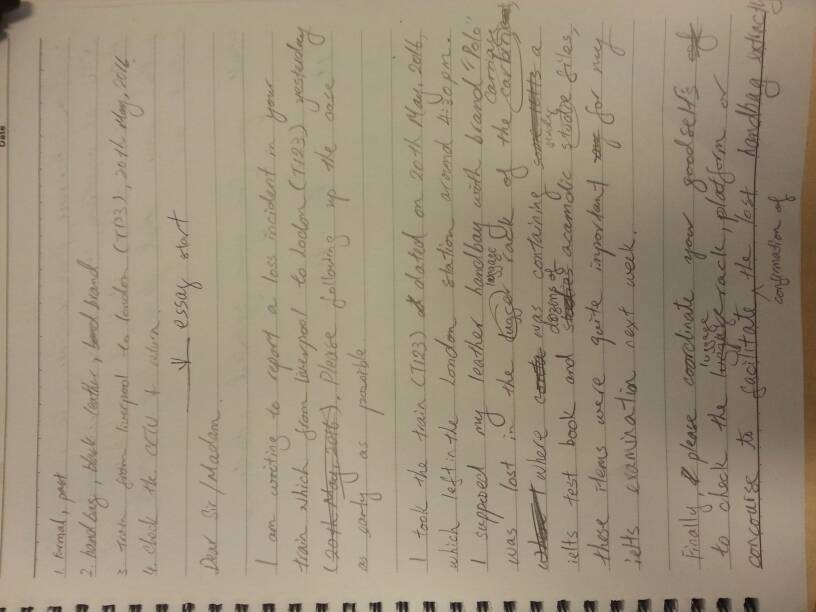 Date
1. Formal, past
2. handbag, black leather, brand
3. Train from liverpool to london (T123), 20th May, 2016
4. Check the CCTV & return.
essay start
Dear Sir/Madam.
I am writing to report a loss incident in your
train which from liverpool to london (T123) yesterday
(20th May, 2016). Please following up the case
as early as possible
I took the train (T123) dated on 20th May, 2016,
which left in the London station around 4:30pm.
I supposed my leather handbag with brand "Polo"
luggage
carriage
was lost in the lugger rack of the
where was containing a
dozens of
study
ielts test book and acamdic studie files,
these items were quite important for my
ielts examination next week.
Finally, please coordinate your goodselfs
luggage
to check the rack, platform or
concourse to facilitate the lost handbag
confirmation of